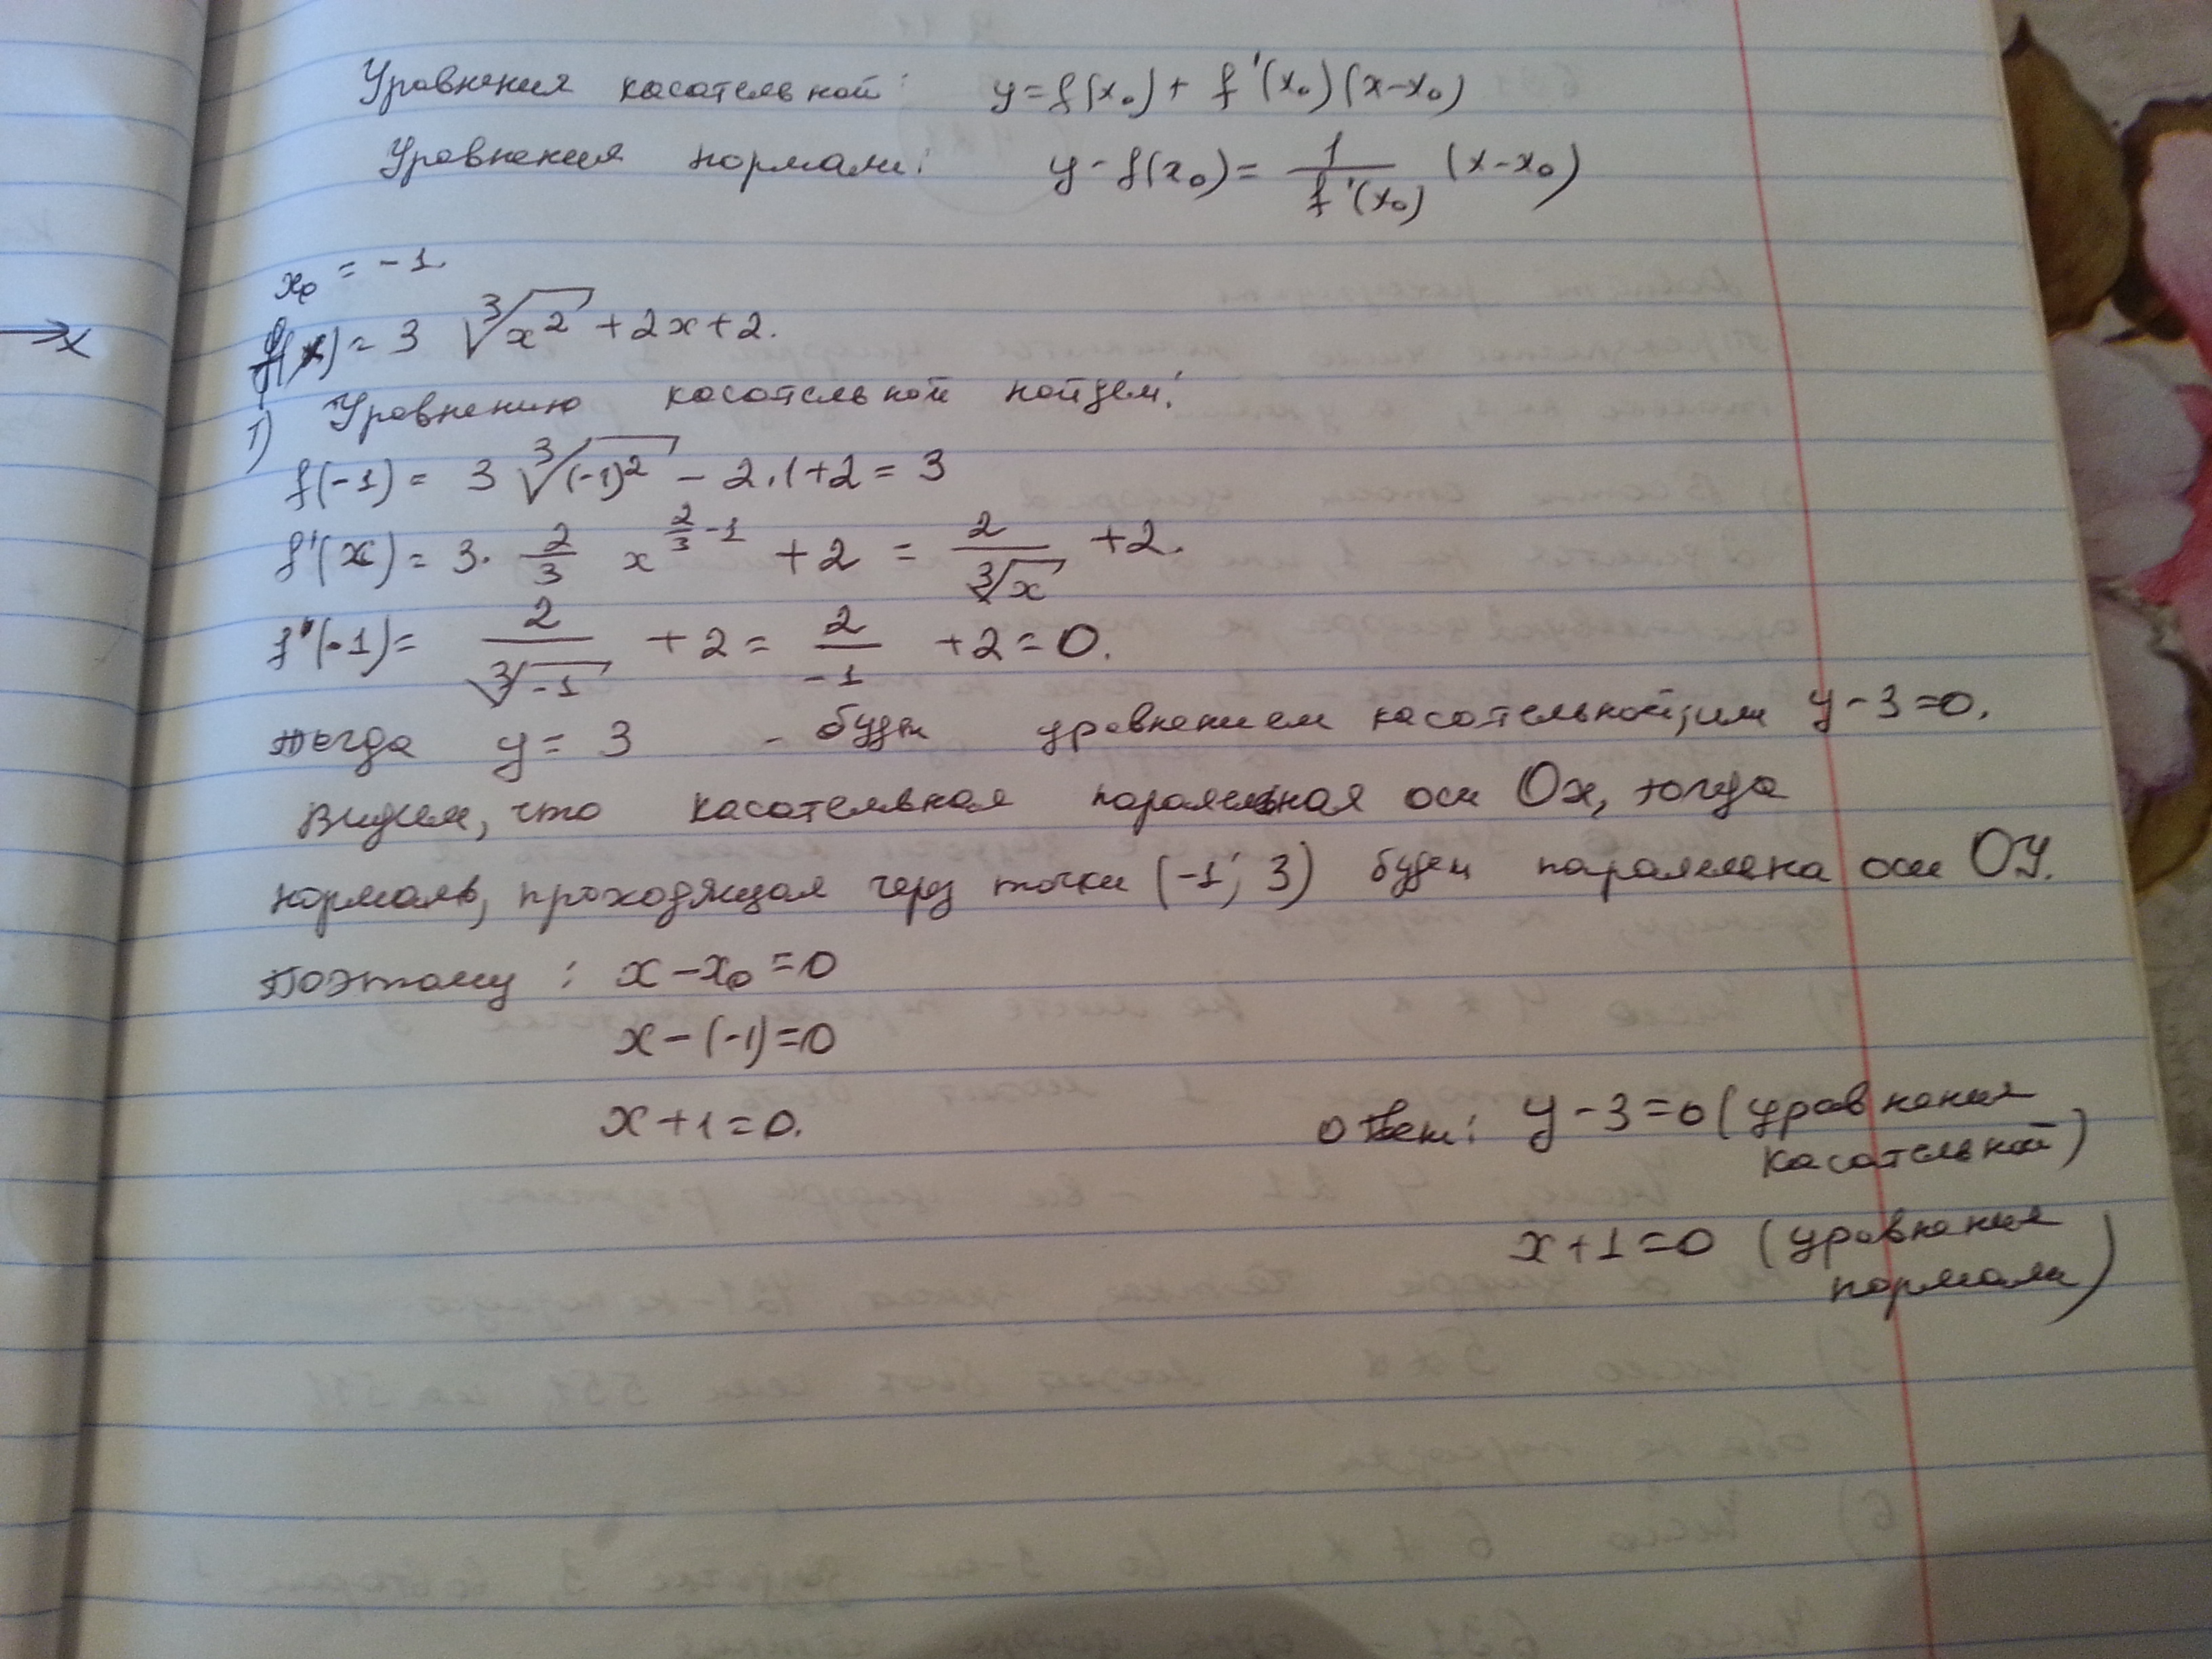 Уравнения касательной: y = f(x₀) + f'(x₀)(x-x₀)
Уравнения нормали: y - f(x₀) = 1/f'(x₀) (x-x₀)
x₀ = -1.
f(x) = 3 ∛x² + 2x + 2.
1) Уравнению касательной найдем:
f(-1) = 3 ∛(-1)² - 2·1 + 2 = 3
f'(x) = 3 · 2/3 x^(2/3 - 1) + 2 = 2/∛x + 2.
f'(-1) = 2/∛-1 + 2 = 2/-1 + 2 = 0.
тогда y = 3 - будет уравнением касательной, или y - 3 = 0.
Видим, что касательная оси Ox, тогда
нормаль, проходящая через точки (-1; 3) будет оси OY.
Поэтому: x - x₀ = 0
x - (-1) = 0
x + 1 = 0.
Ответ: y - 3 = 0 (уравнения
касательной)
x + 1 = 0 (уравнения
нормали)
→ x